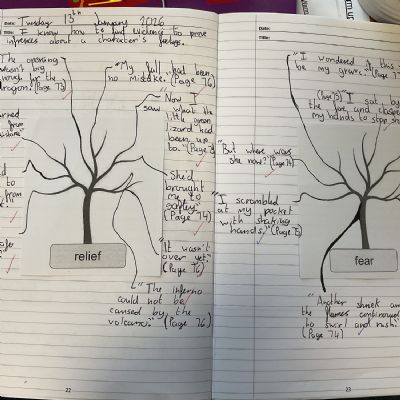 Date: Tuesday 13th January 2026
Title: I know how to find evidence to prove
inferences about a character's feelings.
The opening
wasn't big
for the
dragon." (Page 73)
"My fall had been
no mistake." (Page 76)
"Now I
saw what the
little green
lizard had
been up
to." (Page
She'd
brought
me to
safety"
(Page 74)
"It wasn't
over yet."
(Page 76)
"The inferno
could not be
caused by the
volcano." (Page 76)
from
to
from
relief
22
Date:
Title:
"I wondered if this
be my grave." (Page 7
(Page 75) "I sat by
the fire and clasped
my hands to stop
"But where was
she now?" (Page 74)
"I scrambled
at my pocket
with shaking
hands." (Page
fear
"Another shriek and
the flames continued
to swirl and rush."
(Page 74)
23